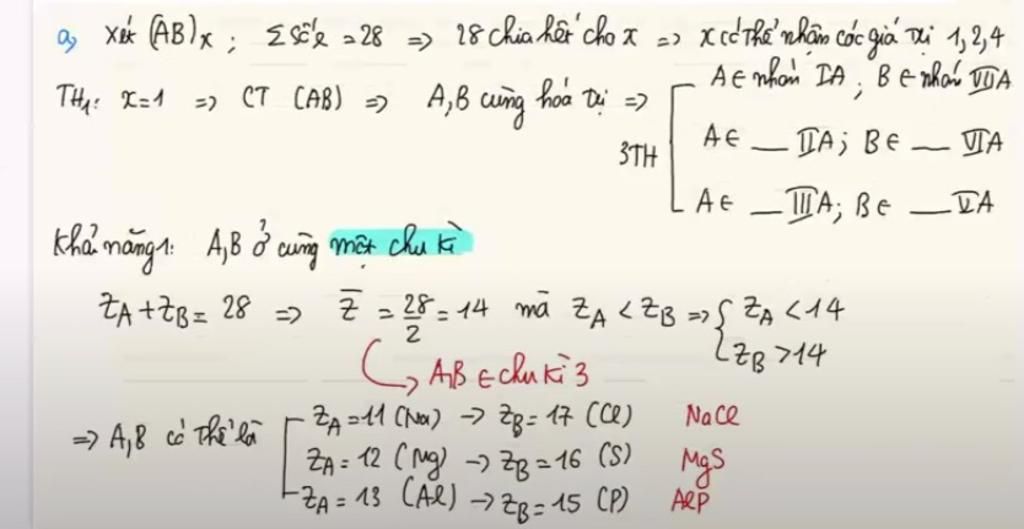 a, Xét (AB)x ; Σ số e = 28 => 28 chia hết cho x => x có thể nhận các giá trị 1, 2, 4
TH1: x=1 => CT (AB) => A,B cùng hoá trị =>
3TH
A∈ nhóm IA ; B∈ nhóm VIIA
A∈ — IIA ; B∈ — VIA
A∈ — IIIA ; B∈ — VA
Khả năng 1: A,B ở cùng một chu kì
ZA + ZB = 28 => Z̄ = 28/2 = 14 mà ZA < ZB => { ZA < 14
ZB > 14
A,B ∈ chu kì 3
=> A,B có thể là
ZA = 11 (Na) -> ZB = 17 (Cl) NaCl
ZA = 12 (Mg) -> ZB = 16 (S) MgS
ZA = 13 (Al) -> ZB = 15 (P) AlP